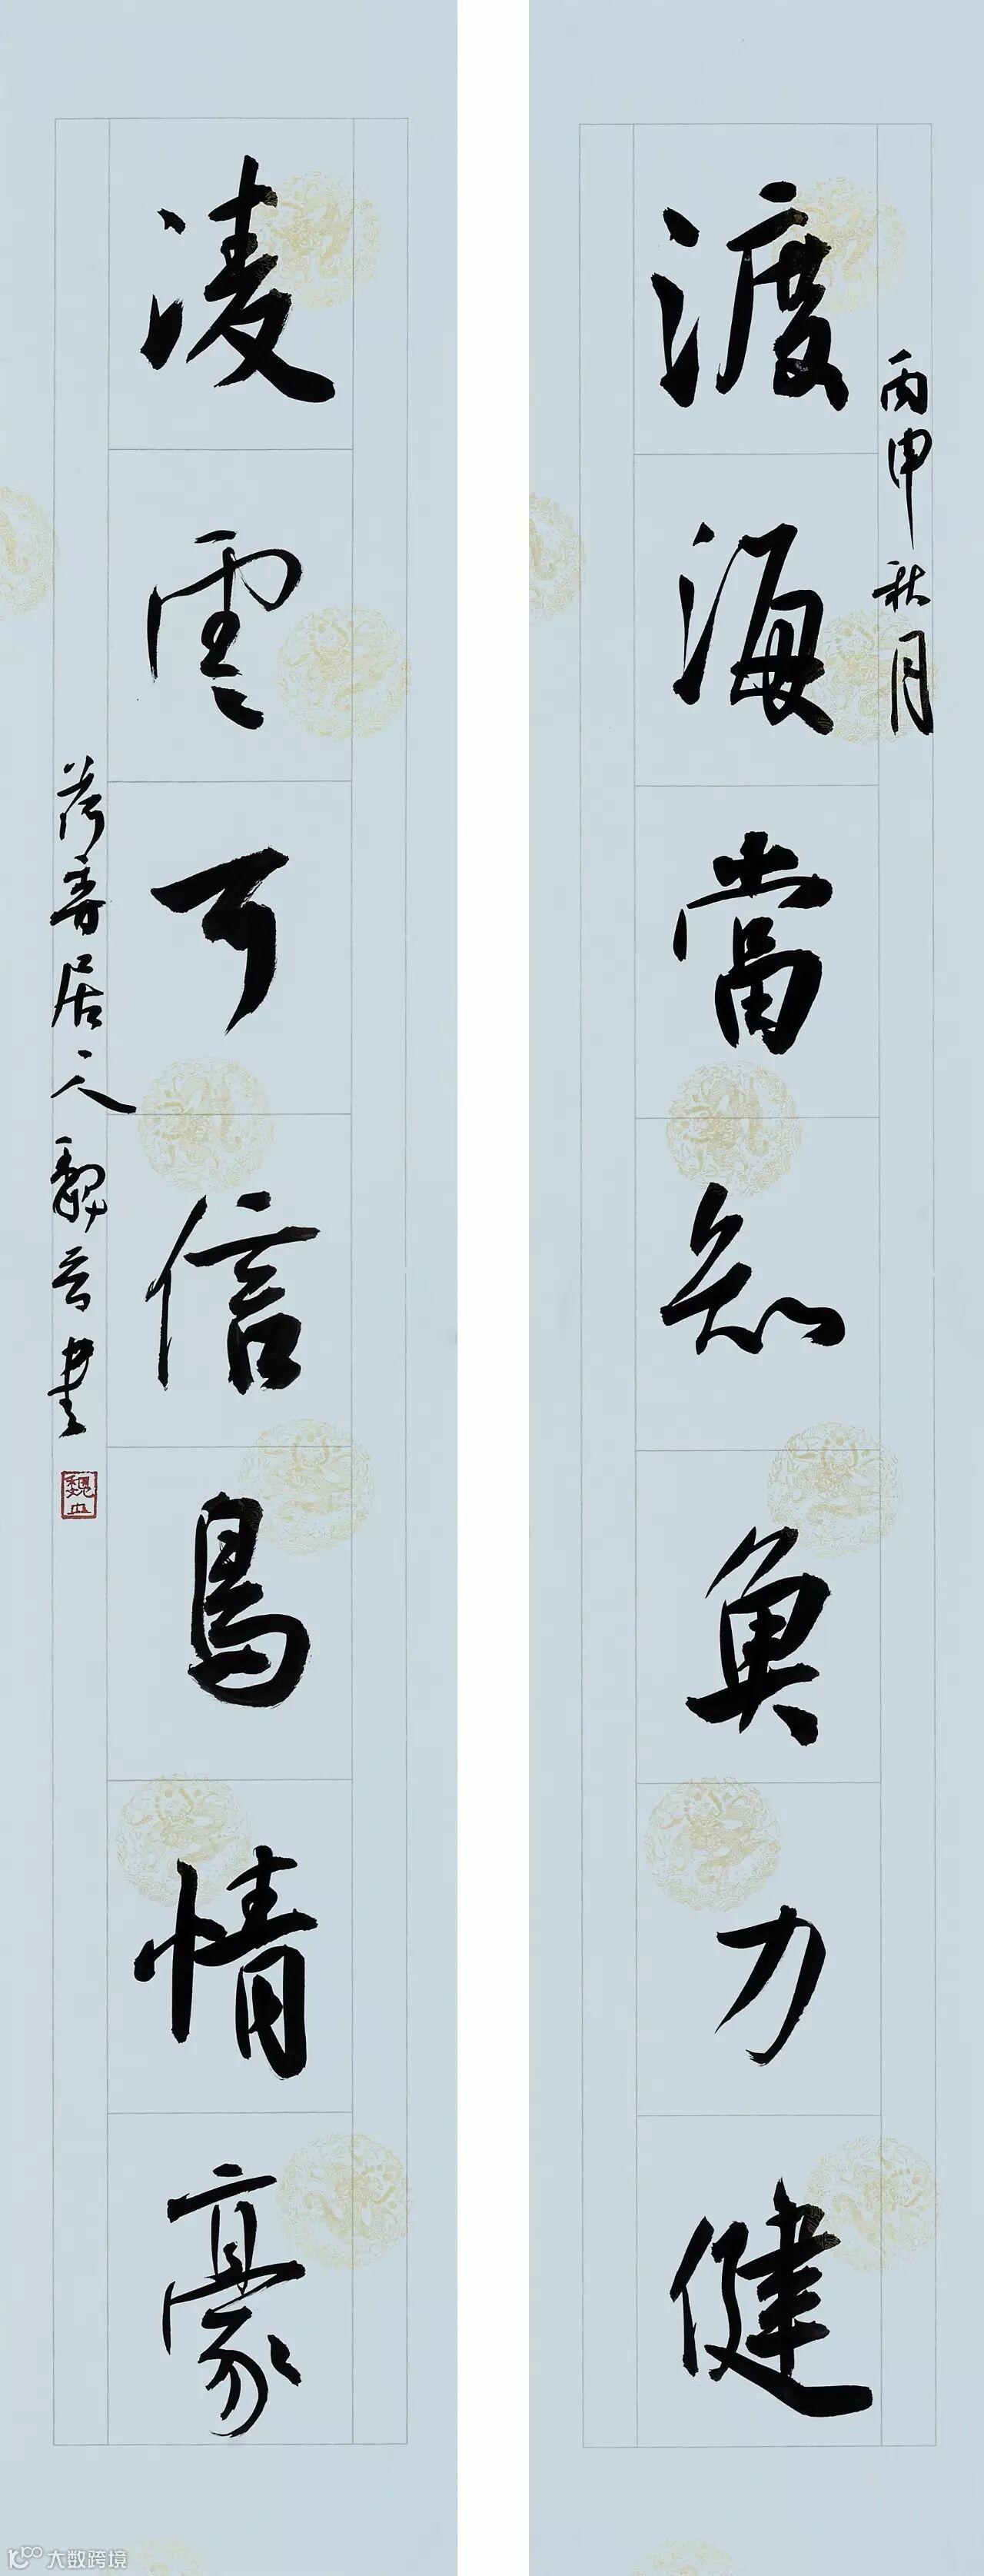 丙申秋月
渡海當知魚力健
凌雲可信鳥情豪
荷香居人魏書
大数跨境